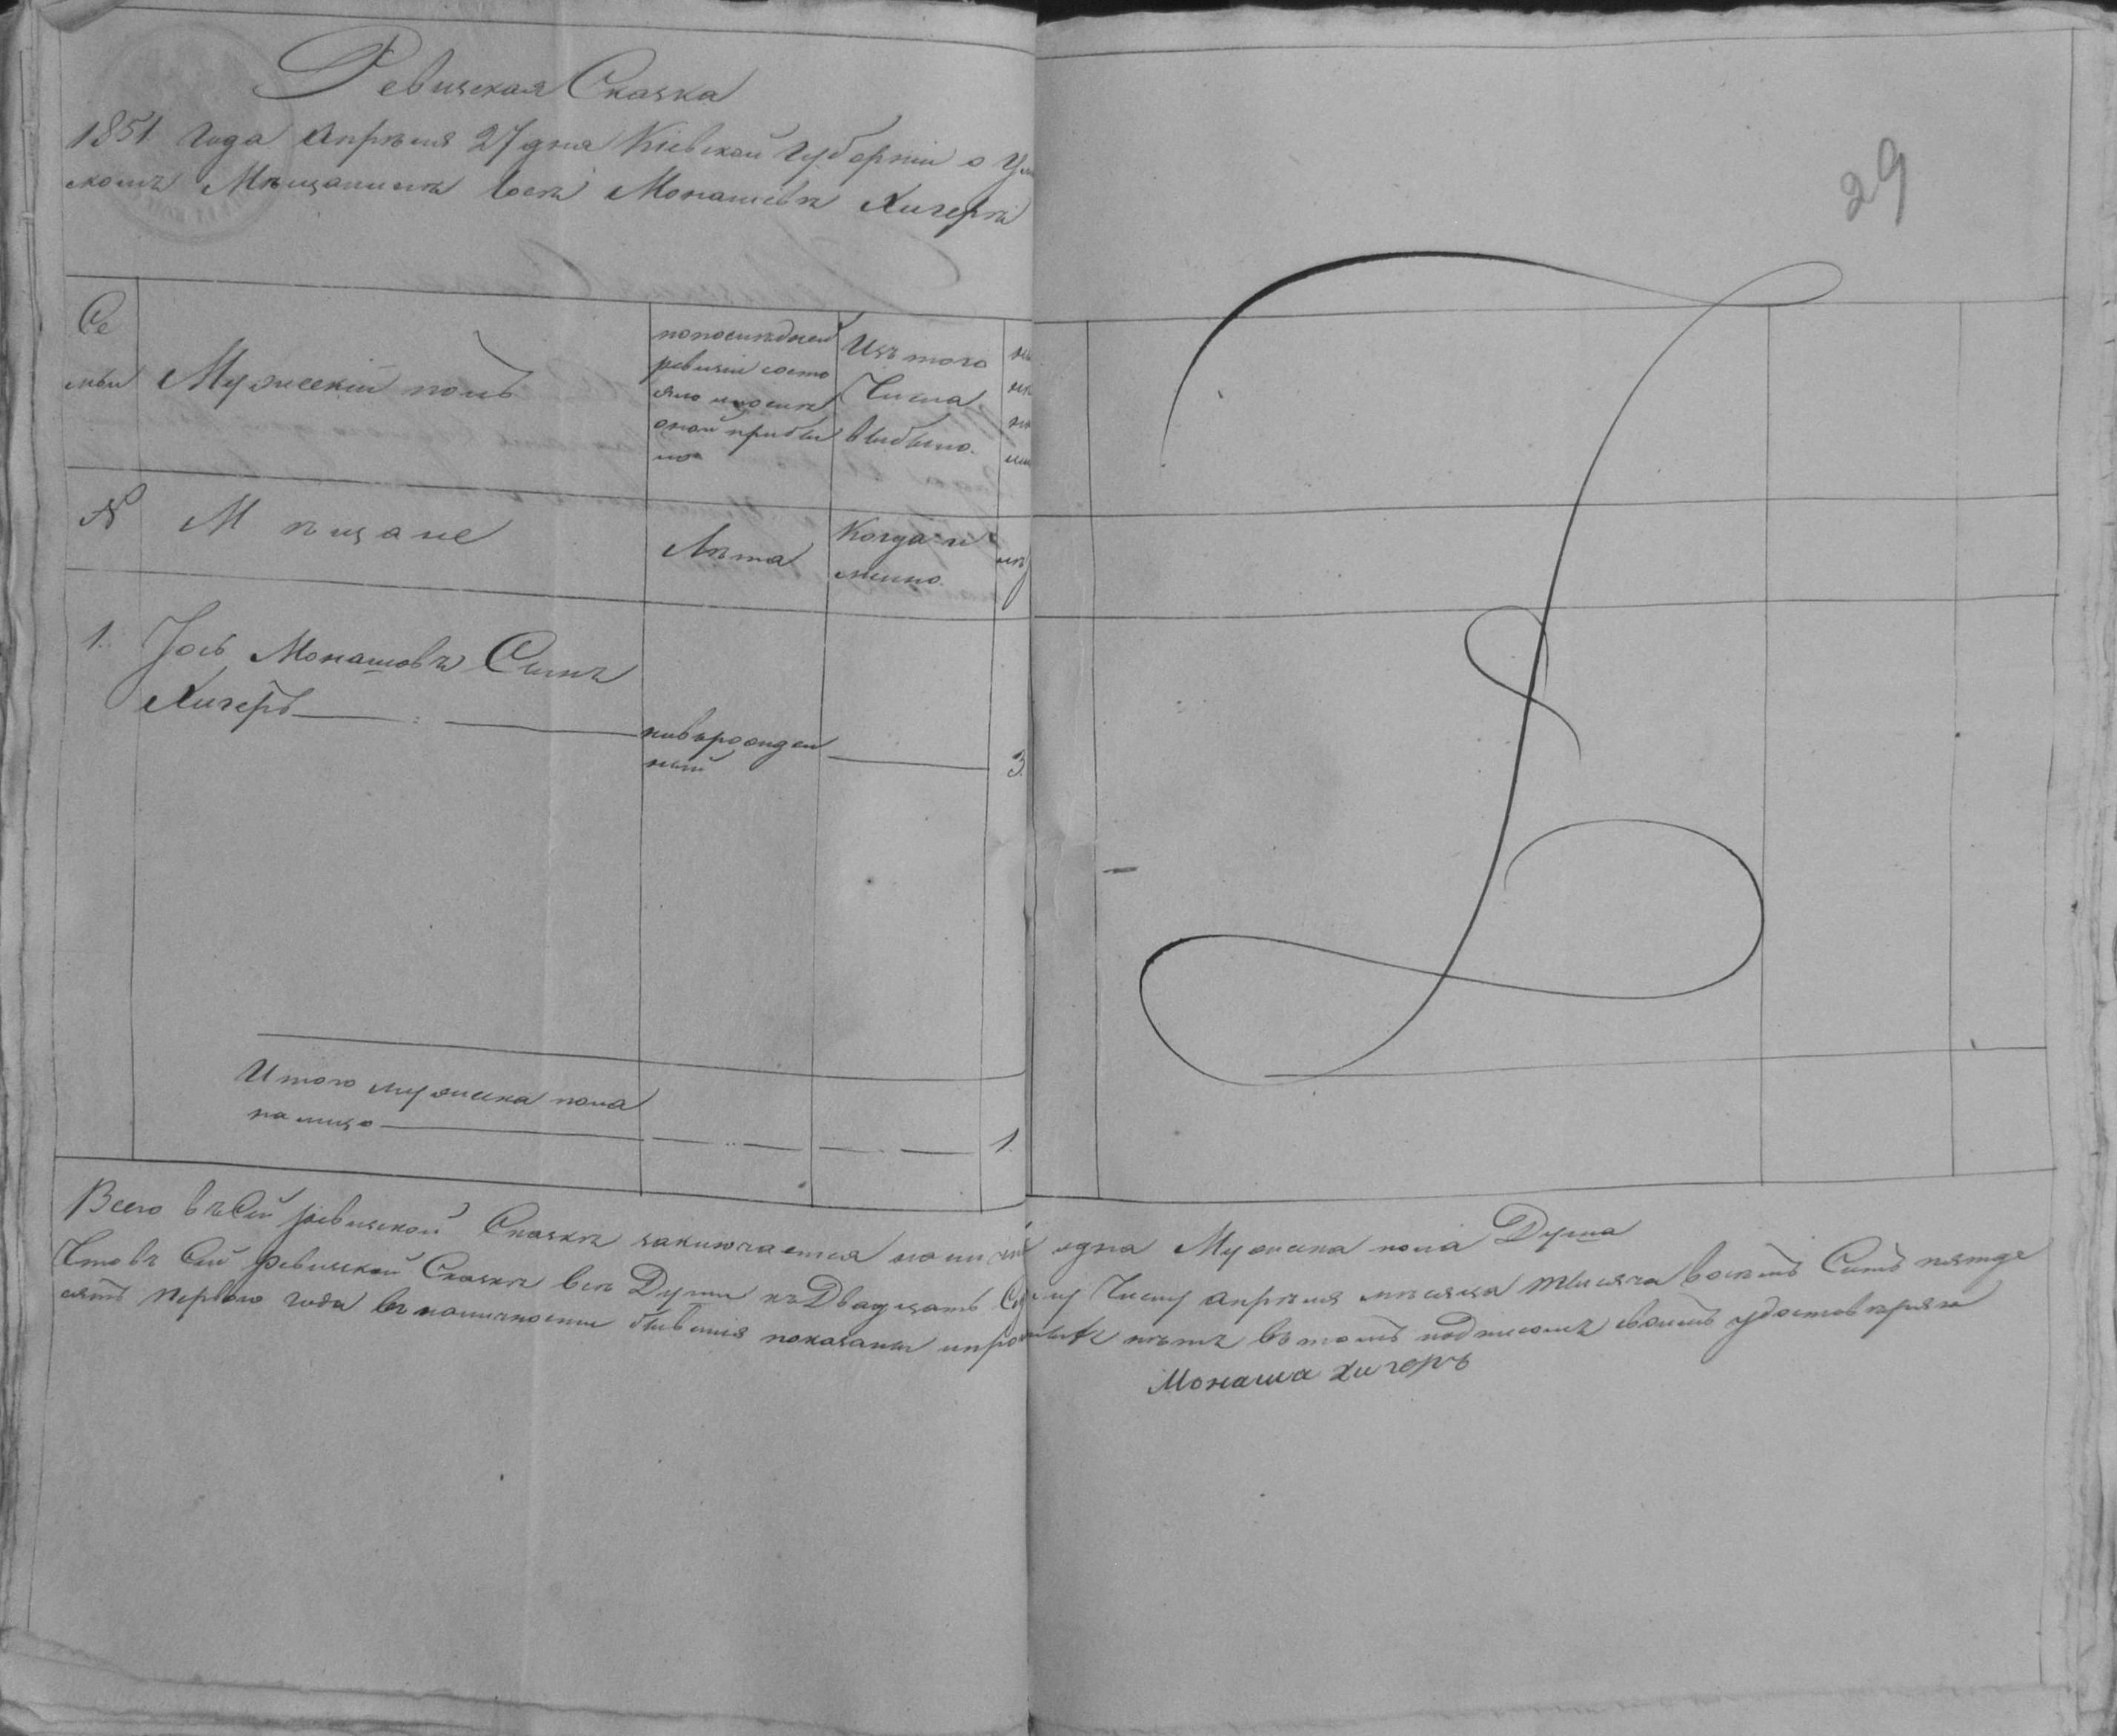 Ревизская Сказка
1851 года Апрѣля 27 дня Кіевской Губерніи о Ум
скомъ Мѣщанинѣ Іосѣ Монашевѣ Хигерѣ
29
Се
мьи
Мужескій полъ
по послѣдней
ревизіи состо
яло и послѣ
оной прибы
ло
Изъ того
Числа
выбыло.
№
Мѣщане
Лѣта
Когда и
менно.
1.
Іось Монашовъ Сынъ
Хигеръ
новорожден
ный
3.
Итого мужеска пола
на лицо
1.
Всего въ Сей ревизской Сказкѣ заключается одна Мужеска пола Душа
Что въ Сей ревизской Сказкѣ всѣ Души къ Двадцать Седьму Числу апрѣля мѣсяца тысяча восемь Сотъ пятьде
сятъ первого года въ наличности бывшія показаны и нѣтъ въ томъ подписомъ своимъ удостовѣряю
Монаша Хигеръ